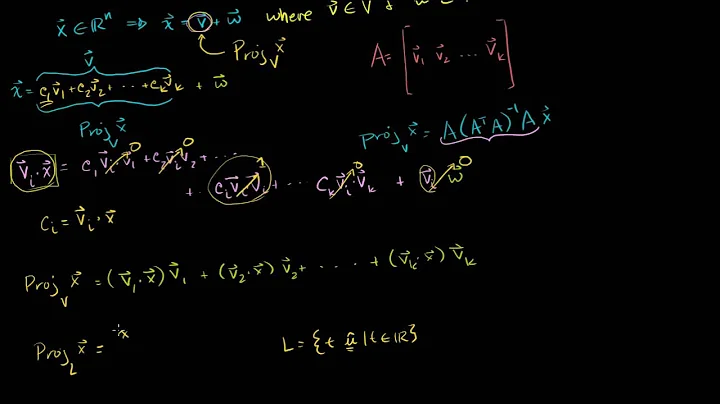 x⃗ ∈ ℝⁿ ⟹ x⃗ = v⃗ + w⃗ where v⃗ ∈ V
Proj_V x⃗
A = [v⃗₁ v⃗₂ ⋯ v⃗ₖ]
v⃗
x⃗ = c₁v⃗₁ + c₂v⃗₂ + ⋯ + cₖv⃗ₖ + w⃗
Proj_V x⃗
Proj_V x⃗ = A(AᵀA)⁻¹A x⃗
v⃗ᵢ · x⃗ = c₁v⃗ᵢ·v⃗₁ 0 + c₂v⃗ᵢv⃗₂ 0 + ⋯
+ ⋯ cᵢv⃗ᵢv⃗ᵢ 1 + ⋯ cₖv⃗ᵢ·v⃗ₖ 0 + v⃗ᵢ w⃗ 0
cᵢ = v⃗ᵢ · x⃗
Proj_V x⃗ = (v⃗₁·x⃗)v⃗₁ + (v⃗₂·x⃗)v⃗₂ + ⋯ + (v⃗ₖ·x⃗)v⃗ₖ
Proj_L x⃗ = x
L = {t û | t ∈ ℝ}